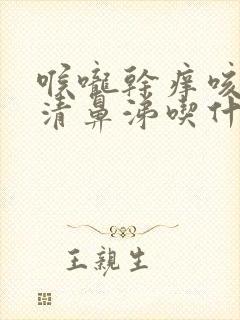 喉嚨幹癢咳
清鼻涕喫什
王親生